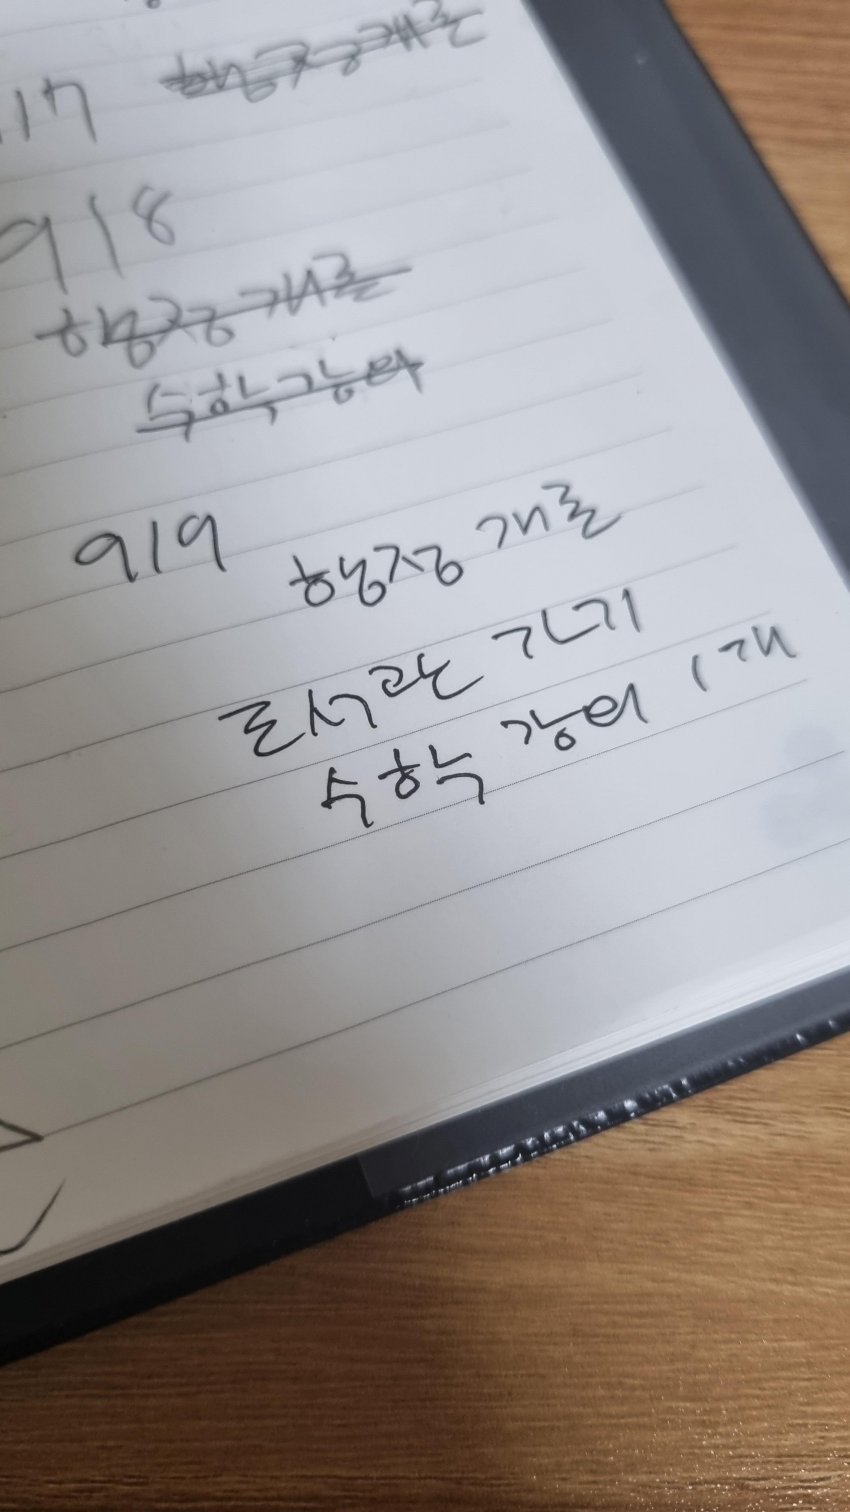 17 행정개론
918
행정개론
수학강의
919 행정개론
도서관 가기
수학 강의 1개